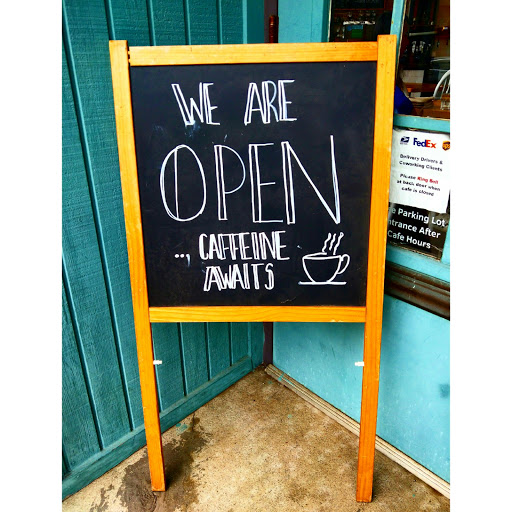 WE ARE
OPEN
.., CAFFEINE
AWAITS
FedEx
Delivery Drivers &
Coworking Clients
Please Ring Bell
at back door when
cafe is closed
Parking Lot
ntrance After
Cafe Hours